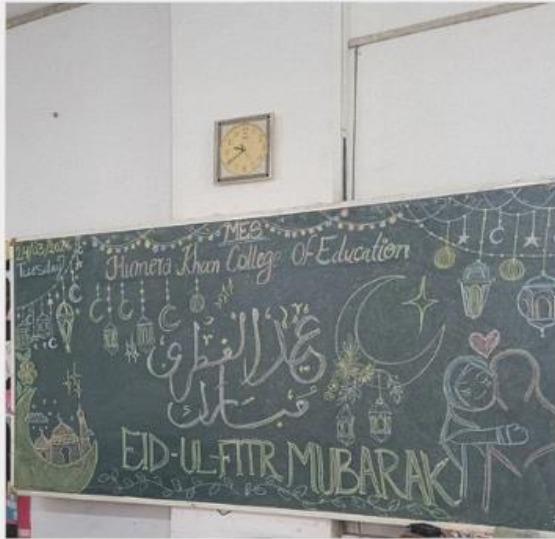 24/03/2026
Tuesday
MES
Humera Khan College Of Education
عيد الفطر
مبارك
EID-UL-FITR MUBARAK